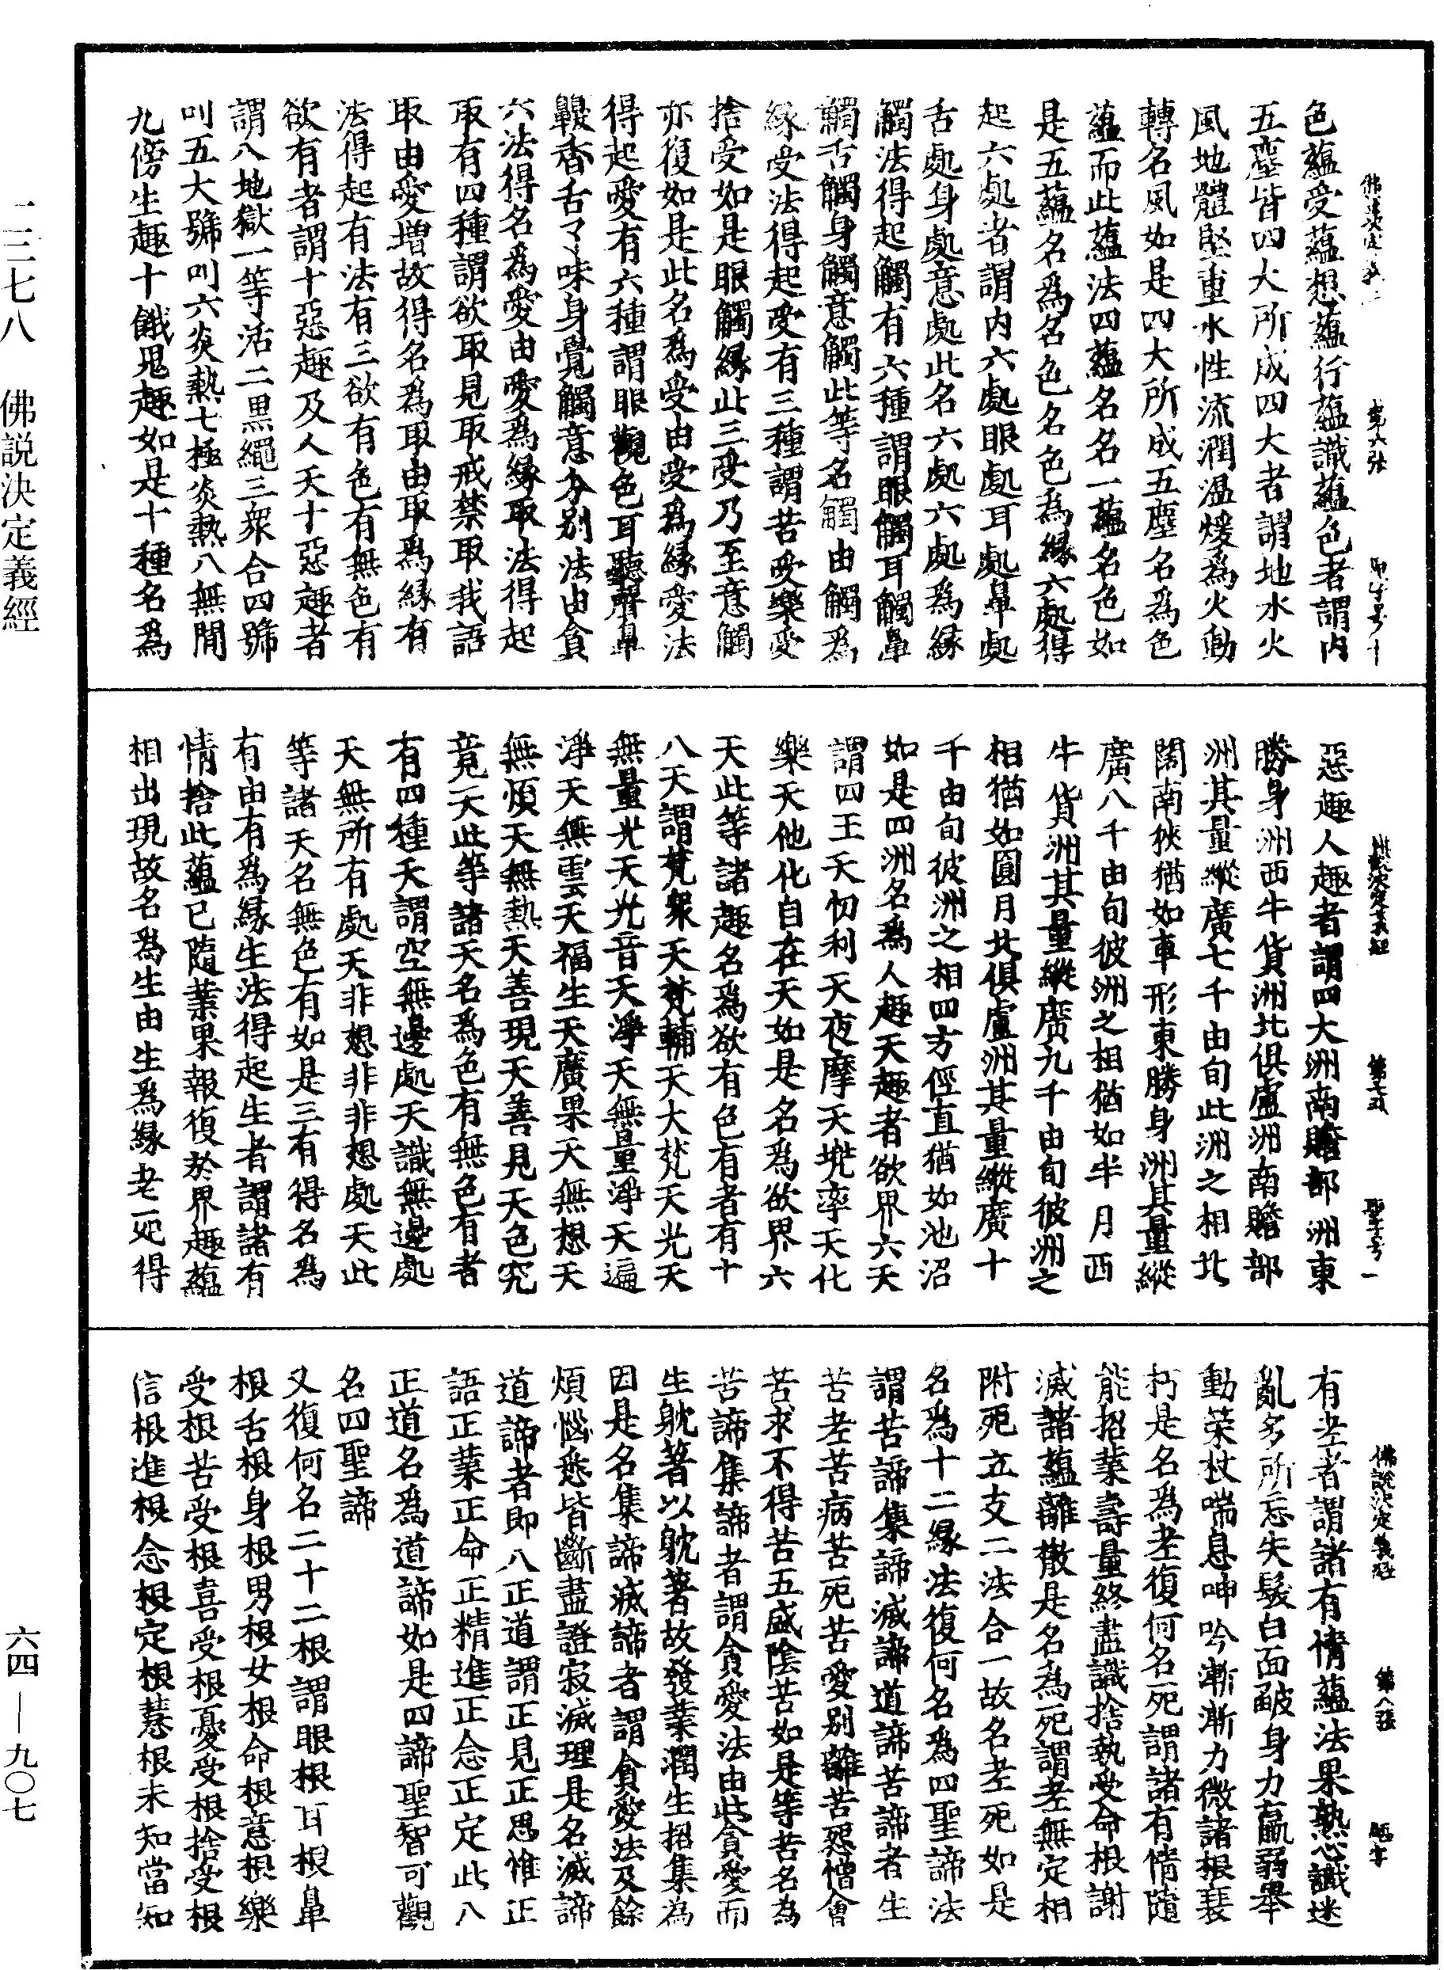 色蘊受蘊想蘊行蘊識蘊色者謂內
五塵皆四大所成四大者謂地水火
風地體堅重水性流潤溫煖為火動
轉名風如是四大所成五塵名為色
蘊而此蘊法四蘊名名一蘊名色如
是五蘊名為名色名色為緣六處得
起六處者謂內六處眼處耳處鼻處
舌處身處意處此名六處六處為緣
觸法得起觸有六種謂眼觸耳觸鼻
觸舌觸身觸意觸此等名觸由觸為
緣受法得起受有三種謂苦受樂受
捨受如是眼觸緣此三受乃至意觸
亦復如是此名為受由受為緣愛法
得起愛有六種謂眼觀色耳聽聲鼻
齅香舌了味身覺觸意分別法由貪
六法得名為愛由愛為緣取法得起
取有四種謂欲取見取戒禁取我語
取由愛增故得名為取由取為緣有
法得起有法有三欲有色有無色有
欲有者謂十惡趣及人天十惡趣者
謂八地獄一等活二黑繩三衆合四號
叫五大號叫六炎熱七極炎熱八無間
九傍生趣十餓鬼趣如是十種名為
惡趣人趣者謂四大洲南贍部洲東
勝身洲西牛貨洲北俱盧洲南贍部
洲其量縱廣七千由旬此洲之相北
闊南狹猶如車形東勝身洲其量縱
廣八千由旬彼洲之相猶如半月西
牛貨洲其量縱廣九千由旬彼洲之
相猶如圓月北俱盧洲其量縱廣十
千由旬彼洲之相四方俓直猶如池沼
如是四洲名為人趣天趣者欲界六天
謂四王天忉利天夜摩天兜率天化
樂天他化自在天如是名為欲界六
天此等諸趣名為欲有色有者有十
八天謂梵衆天梵輔天大梵天光天
無量光天光音天淨天無量淨天遍
淨天無雲天福生天廣果天無想天
無煩天無熱天善現天善見天色究
竟天此等諸天名為色有無色有者
有四種天謂空無邊處天識無邊處
天無所有處天非想非非想處天此
等諸天名無色有如是三有得名為
有由有為緣生法得起生者謂諸有
情捨此蘊已隨業果報復於界趣蘊
相出現故名為生由生為緣老死得
有老者謂諸有情蘊法果熟心識迷
亂多所忘失髮白面皺身力羸弱舉
動策杖喘息呻吟漸漸力微諸根衰
朽是名為老復何名死謂諸有情隨
能招業壽量終盡識捨執受命根謝
滅諸蘊離散是名為死謂老無定相
附死立支二法合一故名老死如是
名為十二緣法復何名為四聖諦法
謂苦諦集諦滅諦道諦苦諦者生
苦老苦病苦死苦愛別離苦怨憎會
苦求不得苦五盛陰苦如是等苦名為
苦諦集諦者謂貪愛法由此貪愛而
生躭著以躭著故發業潤生招集為
因是名集諦滅諦者謂貪愛法及餘
煩惱悉皆斷盡證寂滅理是名滅諦
道諦者即八正道謂正見正思惟正
語正業正命正精進正念正定此八
正道名為道諦如是四諦聖智可觀
名四聖諦
又復何名二十二根謂眼根耳根鼻
根舌根身根男根女根命根意根樂
受根苦受根喜受根憂受根捨受根
信根進根念根定根慧根未知當知
佛說決定義經
第七張
佛說決定義經
第八張
二三七八　佛說決定義經
六四—九〇七